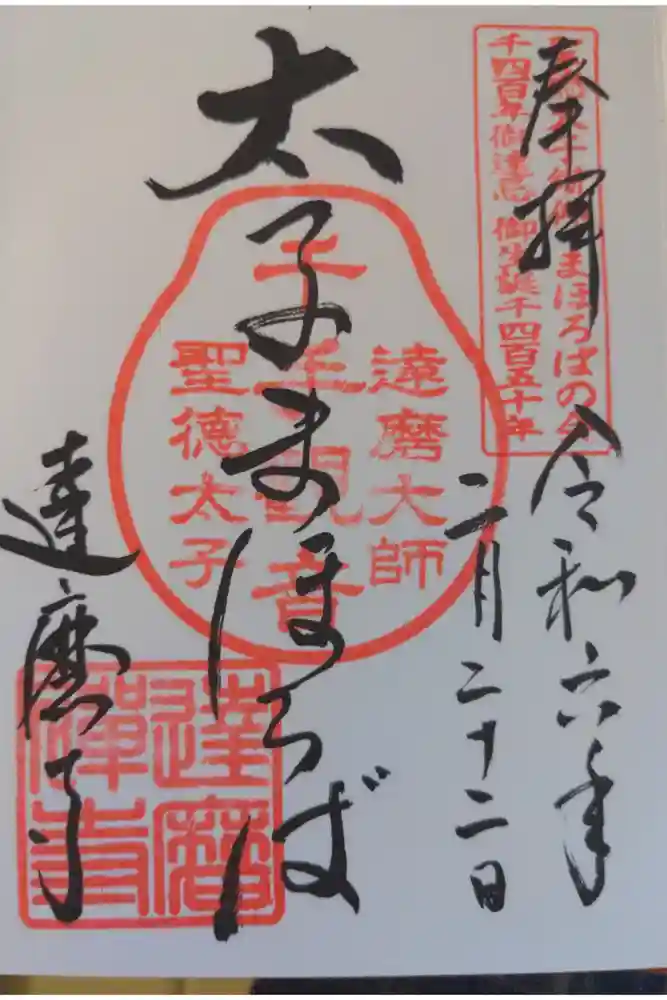 奉拝
聖徳太子御遺跡まほろばの会
千四百年御遠忌 御生誕千四百五十年
令和六年
二月二十二日
太子まほろば
達磨大師
千手観音
聖徳太子
達磨寺
達磨
禅寺